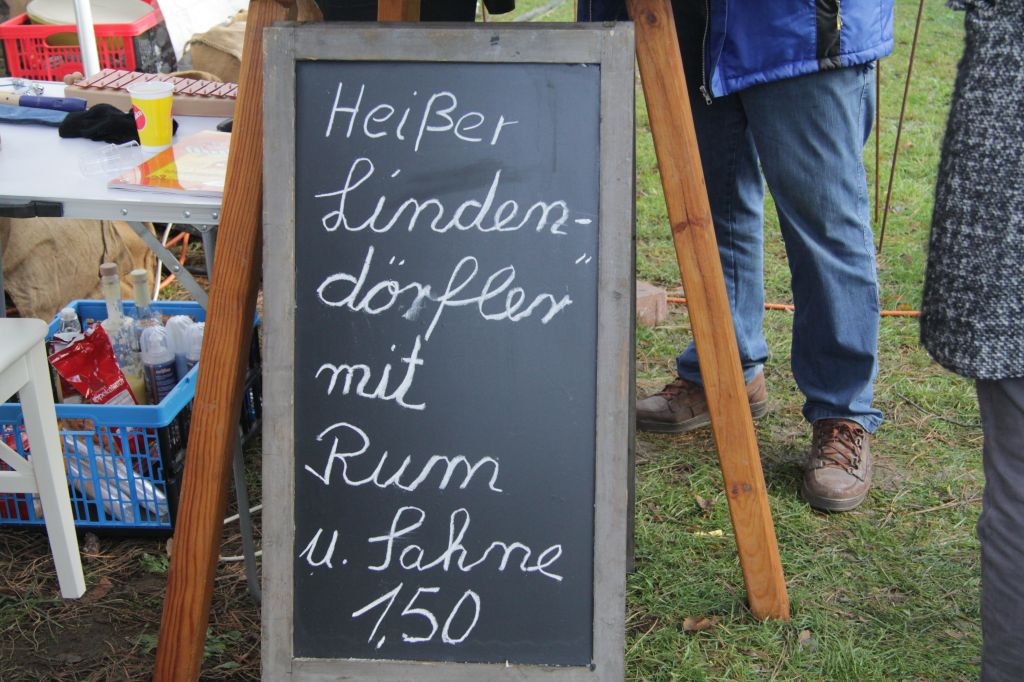 Heißer
Linden-
dörfler"
mit
Rum
u. Sahne
1,50